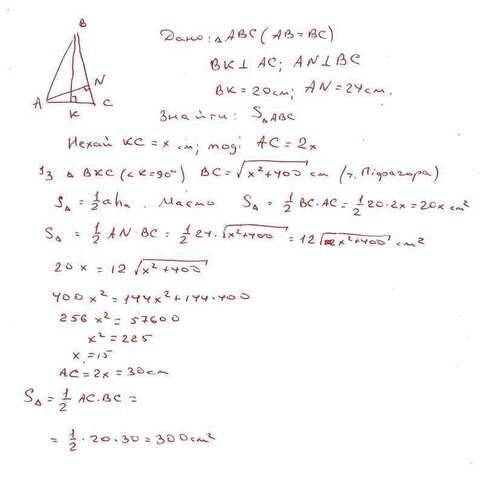 B
A
N
K
C
Дано: △ABC (AB=BC)
BK⊥AC; AN⊥BC
BK=20см; AN=24см.
Знайти: S△ABC
Нехай KC=x см; тоді AC=2x
Із △BKC (<K=90°) BC=√(x²+400) см (т. Піфагора)
S△=1/2 aha. Маємо S△=1/2 BC·AC=1/2 20·2x=20x см²
S△=1/2 AN·BC=1/2 24·√(x²+400)=12√(x²+400) см²
20x=12√(x²+400)
400x²=144x²+144·400
256x²=57600
x²=225
x=15
AC=2x=30см
S△=1/2 AC·BC=
=1/2·20·30=300см²